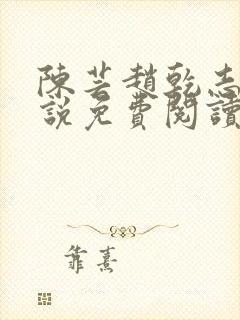 陳芸趙乾志
說免費閱讀
靠熹